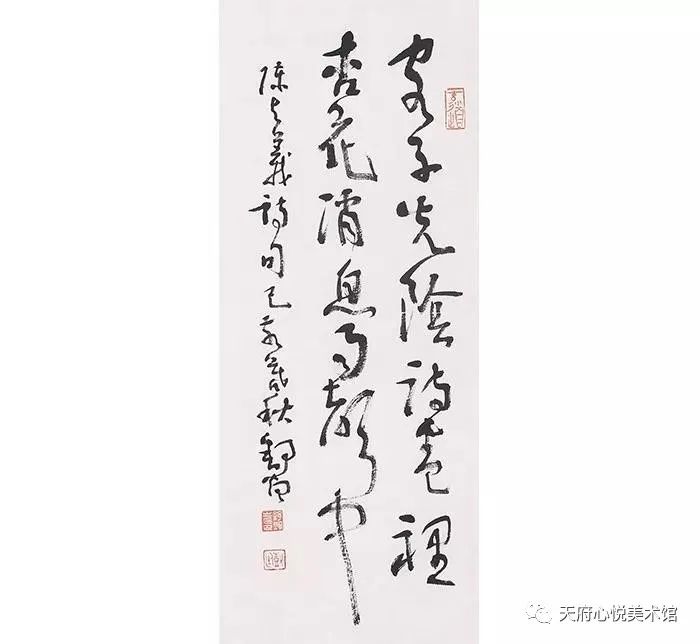 客子光陰詩卷裡
杏花消息雨聲中
陳与義詩句己亥年秋
天府心悦美术馆